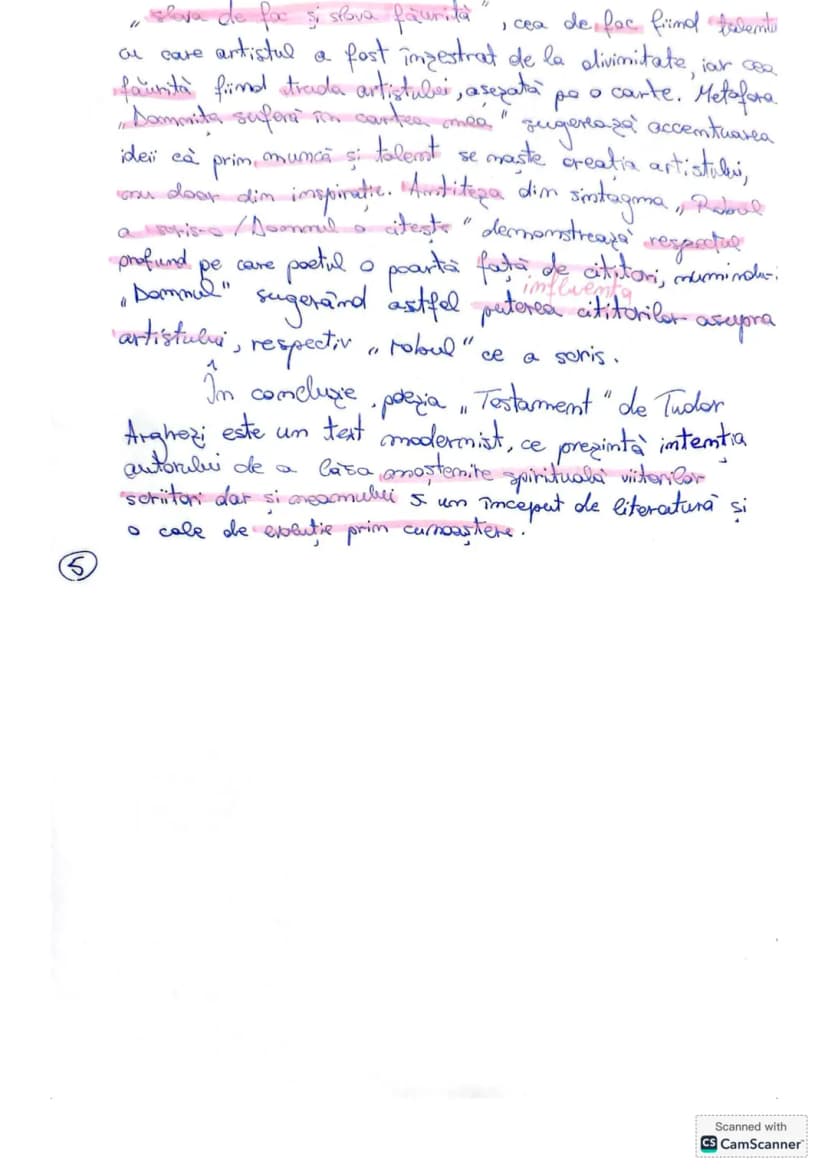 „slova de foc și slova făurită”, cea de foc fiind talentu
cu care artistul a fost înzestrat de la divinitate, iar cea
făurită fiind truda artistului, așezată pe o carte. Metafora
„Domnița suferă în cartea mea” sugerează accentuarea
ideii că prim muncă și talent se naște creația artistului,
nu doar din inspirație. Antiteza din sintagma „Robul
a scris-o/Domnul o citește” demonstrează respectul
profund pe care poetul o poartă față de cititori, numindu-i
influența
„Domnul” sugerând astfel puterea cititorilor asupra
artistului, respectiv „robul” ce a scris.
În concluzie, poezia „Testament” de Tudor
Arghezi este un text modernist, ce prezintă intenția
autorului de a lăsa moștenire spirituală viitorilor
scriitori dar și neamului un început de literatură și
o cale de evoluție prin cunoaștere.
5
Scanned with
CS CamScanner